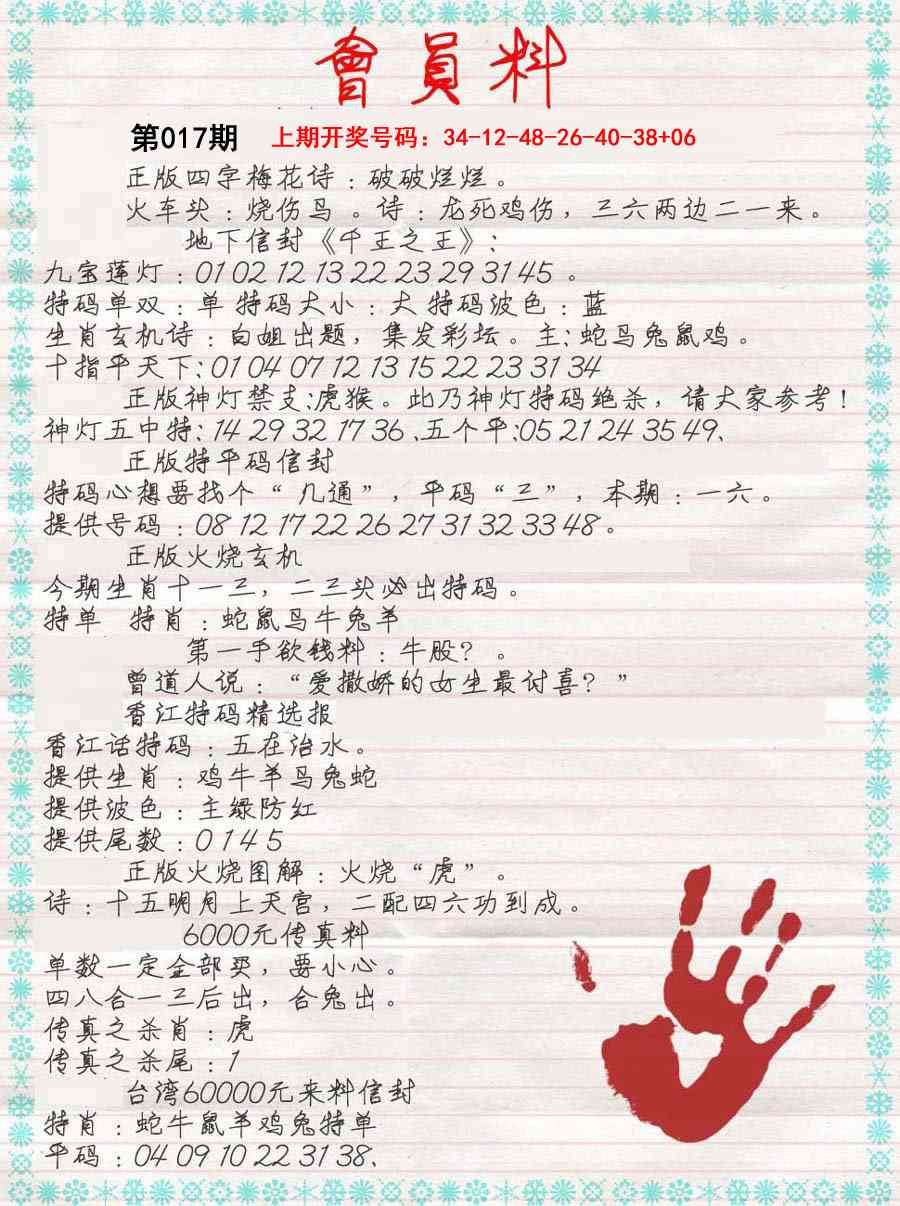 會員料
第017期 上期开奖号码：34-12-48-26-40-38+06
正版四字梅花诗：破破烂烂。
火车头：烧伤鸟 。诗：龙死鸡伤，三六两边二一来。
地下信封《千王之王》：
九宝莲灯：01 02 12 13 22 23 29 31 45 。
特码单双：单 特码大小：大 特码波色：蓝
生肖玄机诗：白姐出题，集发彩坛。主：蛇马兔鼠鸡。
十指平天下：01 04 07 12 13 15 22 23 31 34
正版神灯禁支：虎猴。此乃神灯特码绝杀，请大家参考！
神灯五中特：14 29 32 17 36 、五个平：05 21 24 35 49、
正版特平码信封
特码心想要找个“ 几通”，平码“三”，本期：一六。
提供号码：08 12 17 22 26 27 31 32 33 48 。
正版火烧玄机
今期生肖十一三，二三头必出特码。
特单 特肖：蛇鼠马牛兔羊
第一手欲钱料：牛股？ 。
曾道人说：“爱撒娇的女生最讨喜？”
香江特码精选报
香江话特码：五在治水。
提供生肖：鸡牛羊马兔蛇
提供波色：主绿防红
提供尾数：0 1 4 5
正版火烧图解：火烧“虎”。
诗：十五明月上天宫，二配四六功到成。
6000元传真料
单数一定金部买，要小心。
四八合一三后出，合兔出。
传真之杀肖：虎
传真之杀尾：1
台湾60000元来料信封
特肖：蛇牛鼠羊鸡兔特单
平码：04 09 10 22 31 38、